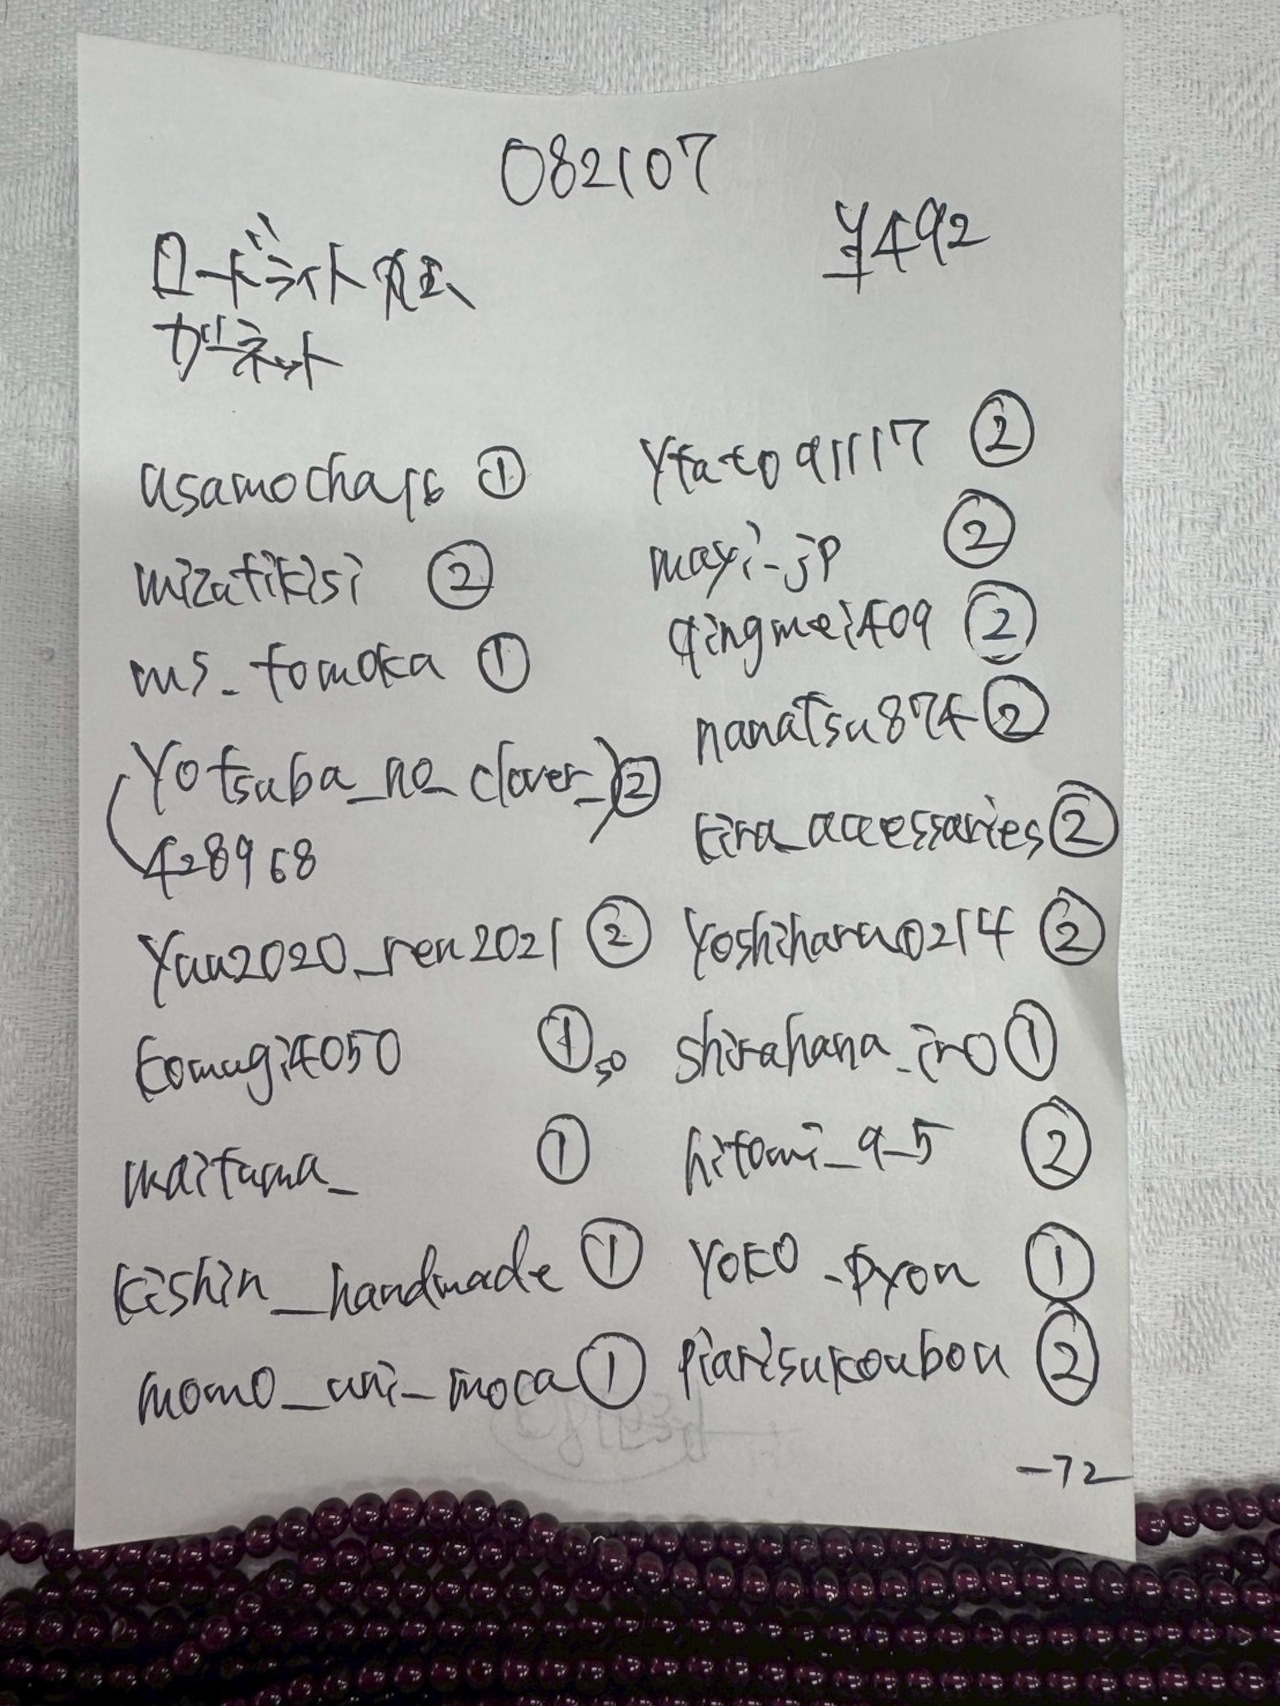 082107
¥492
ロードライト
ガーネット
asamocha16 ①
mizatikisi ②
ms_tomoka ①
Yotsuba_no_clover_ ②
428968
Yuu2020_ren2021 ②
komugi4050 ① 50
maitama_ ①
kishin_handmade ①
momo_uni_moca ①
Ytato91117 ②
mayi_jp ②
qingmei409 ②
nanatsu874 ②
kira_accessaries ②
Yoshiharu0214 ②
shirahana_iro ①
hitomi_9_5 ②
YOKO_pyon ①
piarisukoubou ②
-72